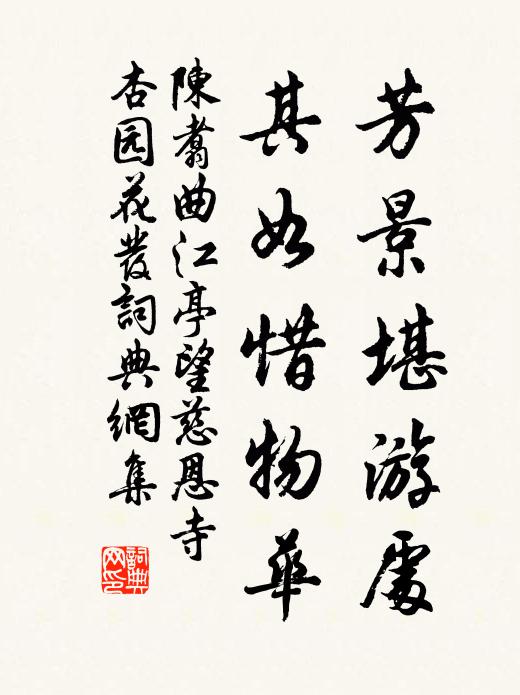 芳景堪游處
其如惜物華
陳翥曲江亭望慈恩寺
杏园花發詞典網集
詞典网印